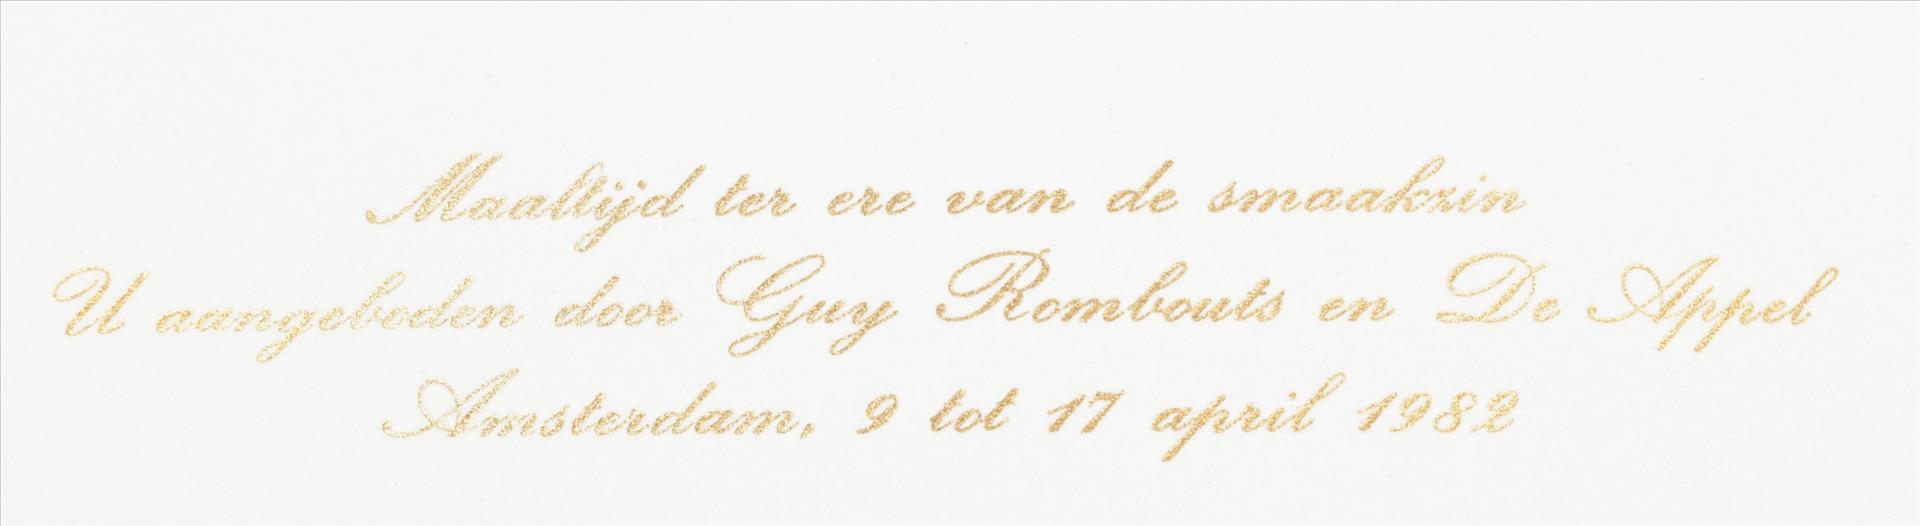 Maaltijd ter ere van de smaakzin
U aangeboden door Guy Rombouts en De Appel
Amsterdam, 9 tot 17 april 1982